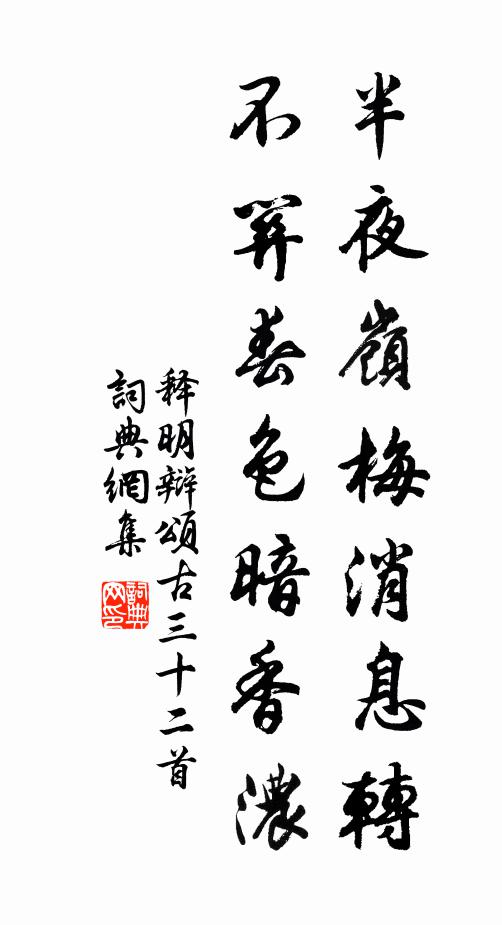 半夜嶺梅消息轉
不笄春色暗香濃
释明辯頌古三十二首
詞典網集
詞典網印